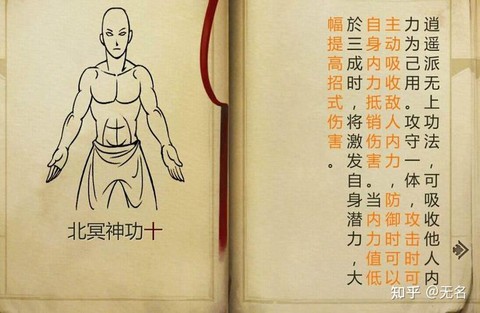 北冥神功十
逍遥派无上功法，可吸收他人内
力为己用。攻守一体，攻击时可
主动吸收敌人内力，防御时可以
自身内力抵销伤害。当内力值低
於三成时，将激发自身潜力，大
幅提高招式伤害。
知乎 @无名